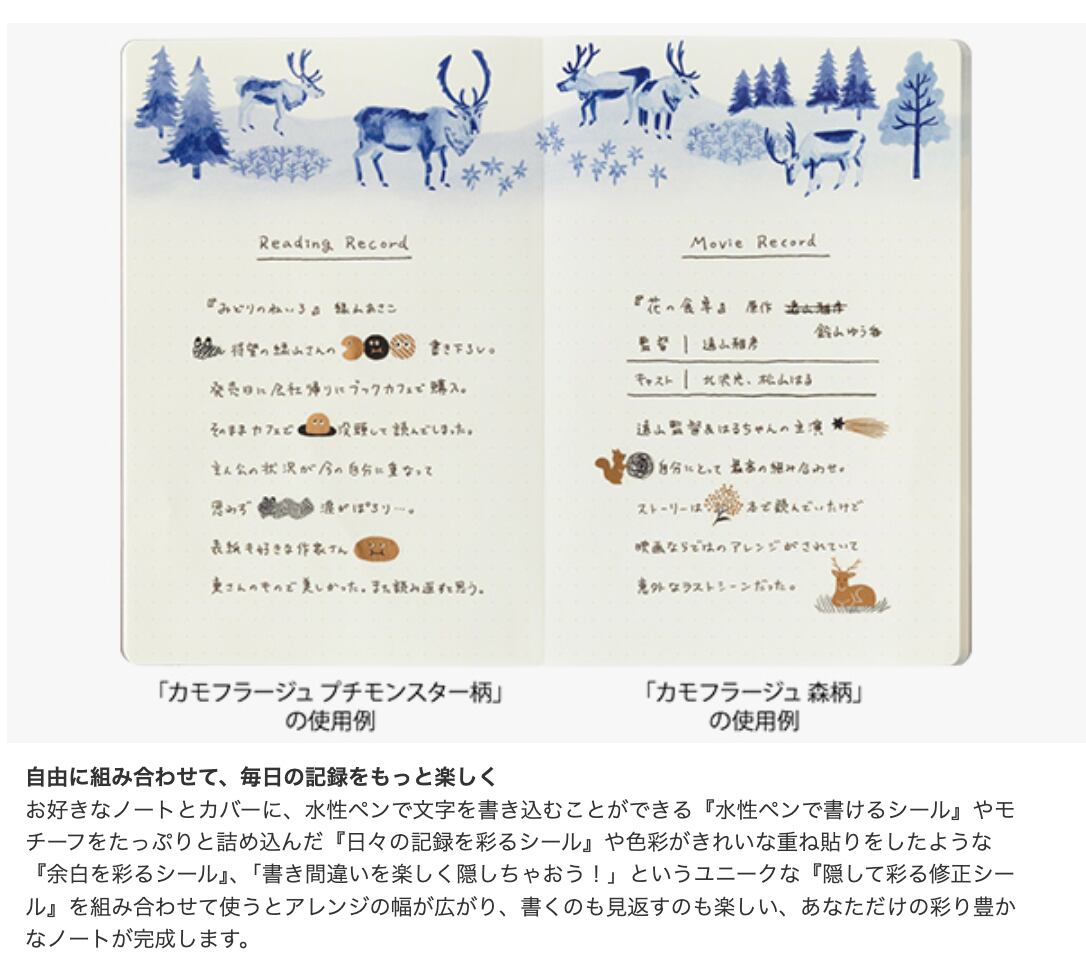 Reading Record
『みどりのねいろ』 緑山あさこ
待望の緑山さんの 書き下ろし。
発売日に会社帰りにブックカフェで購入。
そのままカフェで 没頭して読んでしまった。
主人公の状況が今の自分に重なって
思わず 涙がぽろり…。
表紙も好きな作家さん
東さんのもので美しかった。また読み返すと思う。
Movie Record
『花の食卓』 原作 遠山雅彦
鈴山ゆう
監督 遠山雅彦
キャスト 北沢光、松山はる
遠山監督&はるちゃんの主演
自分にとって最高の組み合わせ。
ストーリーは 本で読んでいたけど
映画ならではのアレンジがされていて
意外なラストシーンだった。
「カモフラージュ プチモンスター柄」
の使用例
「カモフラージュ 森柄」
の使用例
自由に組み合わせて、毎日の記録をもっと楽しく
お好きなノートとカバーに、水性ペンで文字を書き込むことができる『水性ペンで書けるシール』やモ
チーフをたっぷりと詰め込んだ『日々の記録を彩るシール』や色彩がきれいな重ね貼りをしたような
『余白を彩るシール』、「書き間違いを楽しく隠しちゃおう！」というユニークな『隠して彩る修正シー
ル』を組み合わせて使うとアレンジの幅が広がり、書くのも見返すのも楽しい、あなただけの彩り豊か
なノートが完成します。